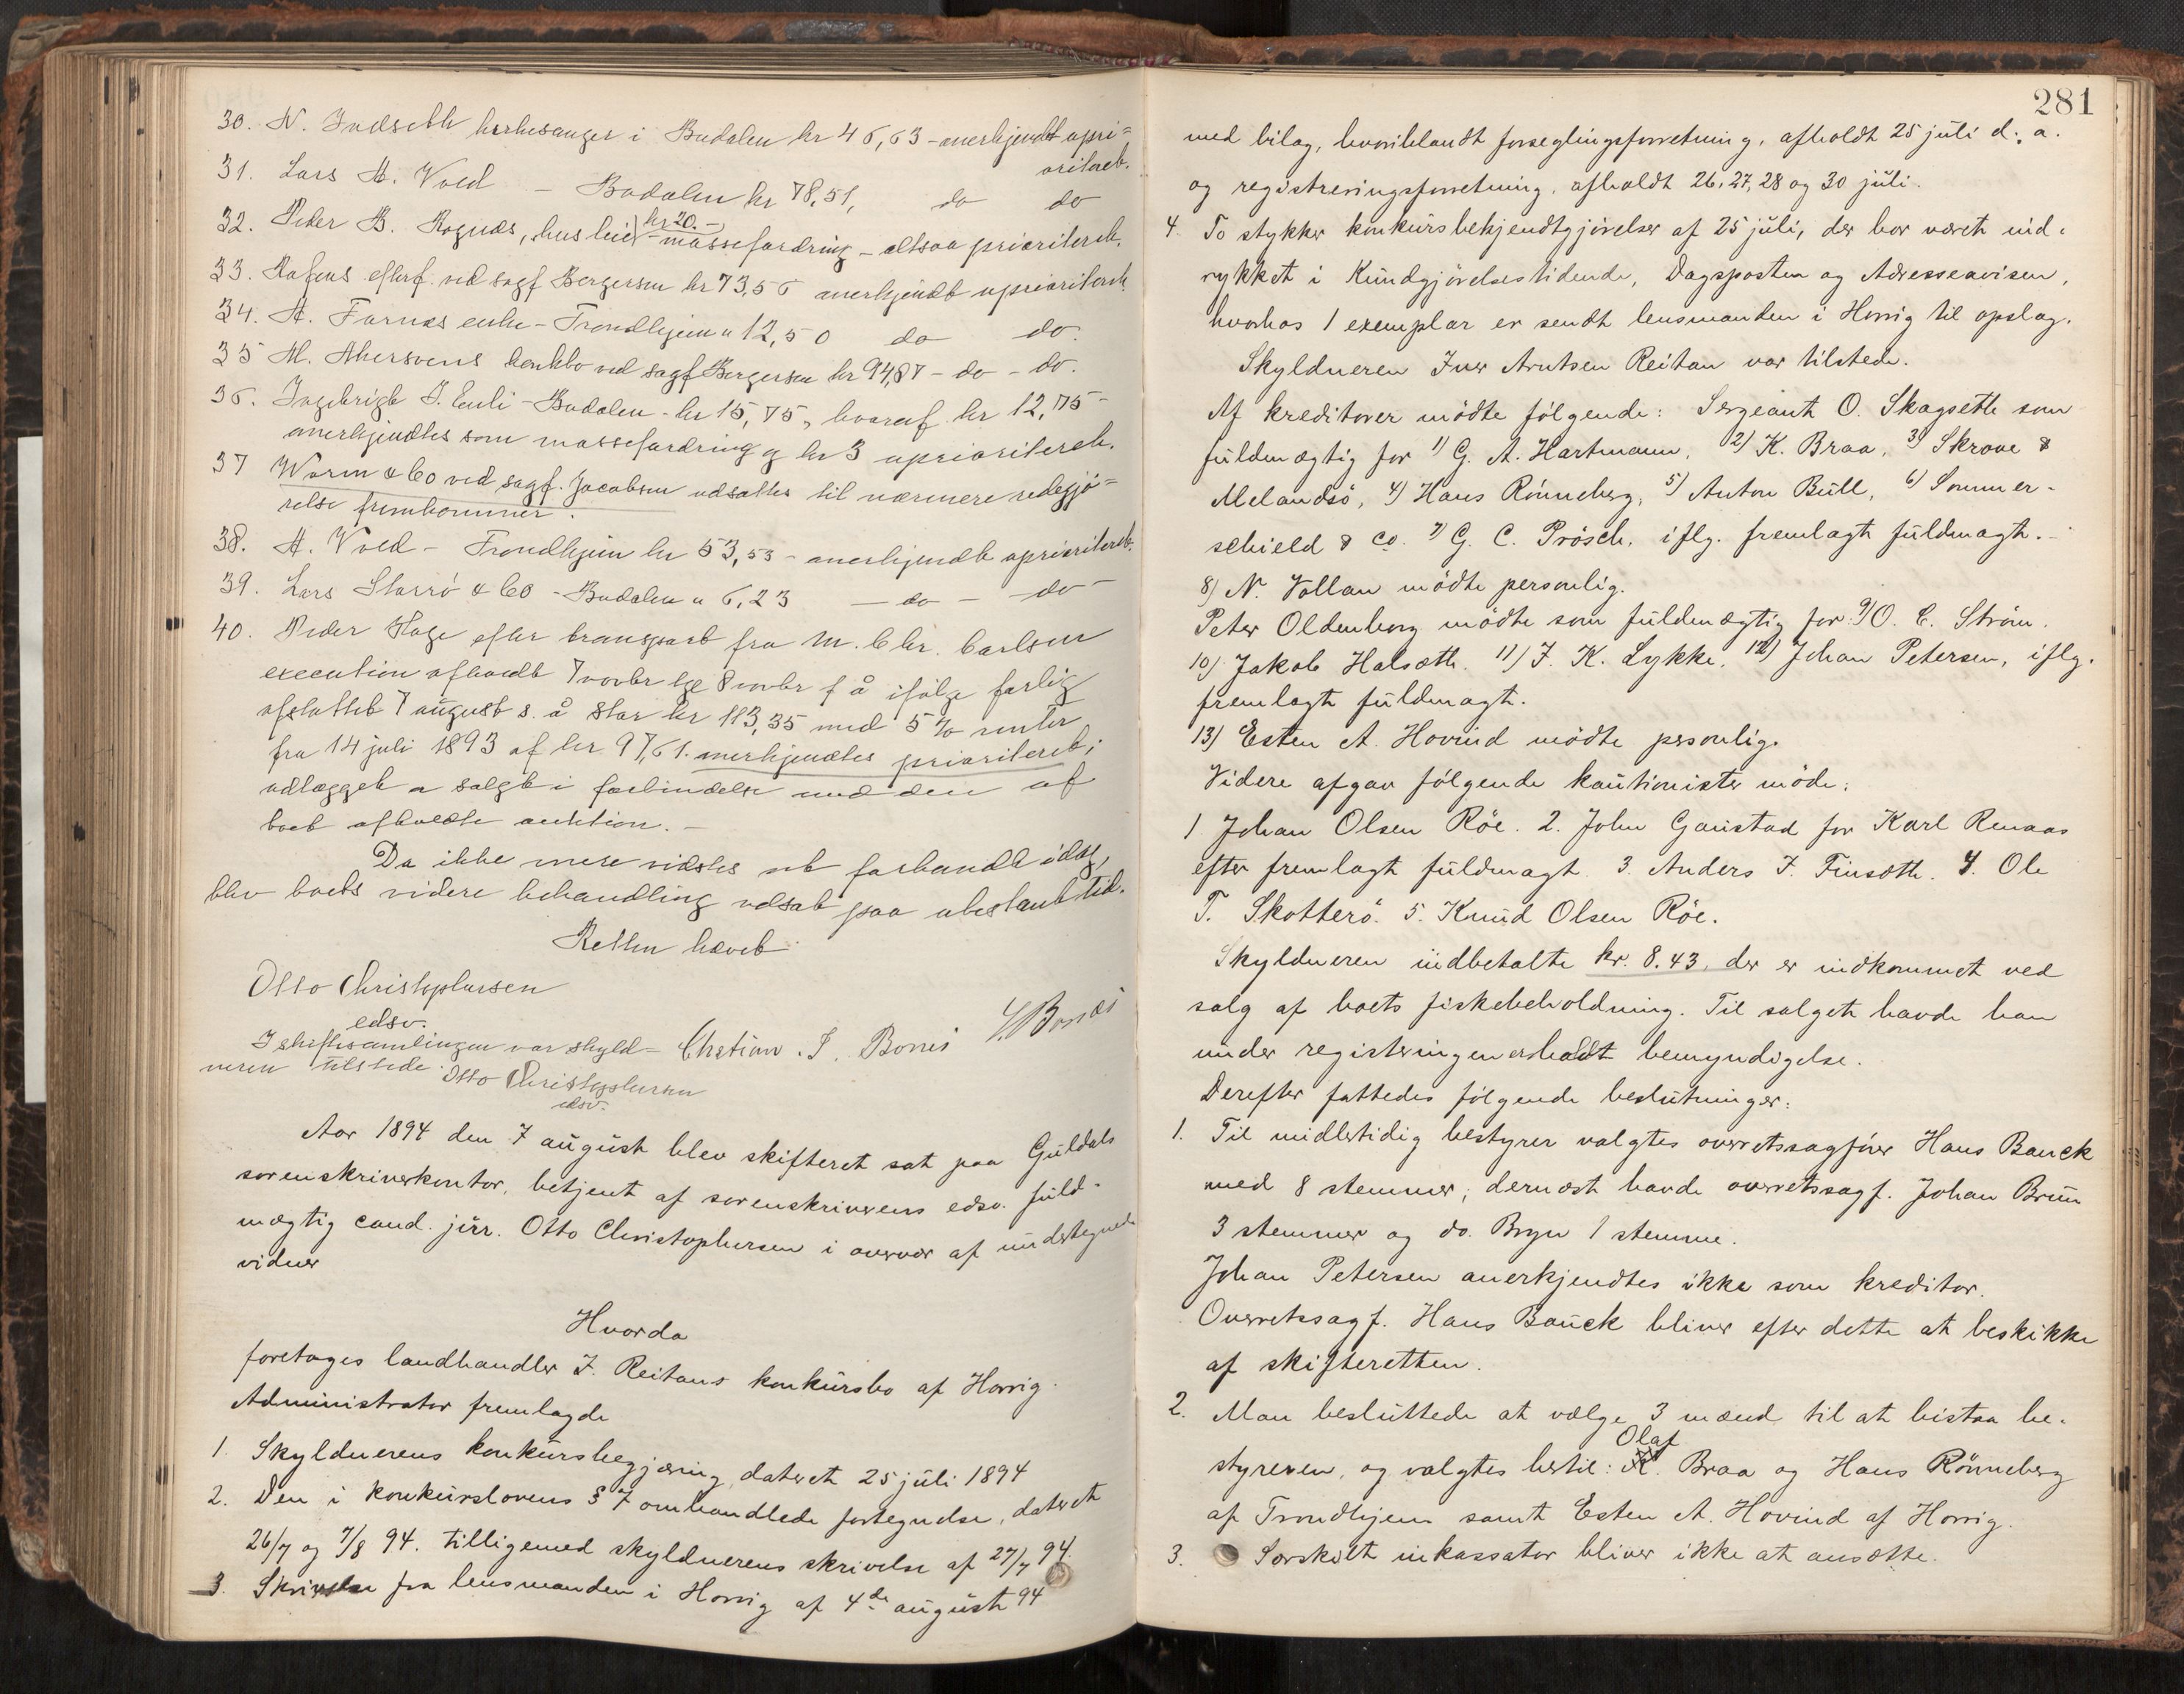 30. N. Indseth kirkesanger i Budalen kr 46,63 - anerkjendt upri=
oriteret.
31. Lars A. Vold - Budalen kr 78,51, do do
32. Peder B. Rognæs, husleie kr 20.- massefordring - altsaa prioriteret.
33. efterf. ved sagf Bergersen kr 73,56 anerkjendt uprioriteret.
34. A. Farnæs enke - Trondhjem " 12,50 do do.
35 M. Akersvens konkbo ved sagf Bergersen kr 94,87 - do - do.
36. Ingebrigt J. Enli - Budalen - kr 15,75, hvoraf kr 12,75 -
anerkjendtes som massefordring og kr 3 uprioriteret.
37 Worm & Co ved sagf. Jacobsen udsattes til nærmere redegjö=
relse fremkommer.
38. A. Vold - Trondhjem kr 53,53 - anerkjendt uprioriteret.
39. Lars Storrö & Co - Budalen " 6,23 - do - - do -
40. Peder Hage efter transport fra M. Chr. Carlsen
execution afholdt 7 novbr lge 8 novbr f å ifölge forlig
afsluttet 7 august s. å stor kr 113,35 med 5 % renter
fra 14 juli 1893 af kr 97,61. anerkjendtes prioriteret;
udlægget er solgt i forbindelse med den af
boet afholdte auktion. -
Da ikke mere vidstes at forhandle idag,
blev boets videre behandling udsat paa ubestemt tid.
Retten hævet
Otto Christophersen
edsv.
Chstian. J. Bones
I skiftesamlingen var skyld-
neren tilstede. Otto Christophersen
edsv.
Aar 1894 den 7 august blev skifteret sat paa Guldals
sorenskriverkontor, betjent af sorenskriverens edsv. fuld-
mægtig cand. jur. Otto Christophersen i overvær af undertegnede
vidner
Hvorda
foretoges landhandler I. Reitans konkursbo af Horrig.
Administrator fremlagde
1. Skyldnerens konkursbegjæring, dateret 25 juli 1894
2. Den i konkurslovens § 7 omhandlede fortegnelse, dateret
26/7 og 7/8 94. tilligemed skyldnerens skrivelse af 27/7 94.
3. Skrivelse fra lensmanden i Horrig af 4de august 94
281
med bilag, hvoriblandt forseglingsforretning, afholdt 25 juli d. a.
og registreringsforretning, afholdt 26, 27, 28 og 30 juli.
4. To stykker konkursbekjendtgjörelser af 25 juli, der har været ind-
rykket i Kundgjörelsestidende, Dagsposten og Adresseavisen,
hvorhos 1 exemplar er sendt lensmanden i Horrig til opslag.
Skyldneren Iver Arntsen Reitan var tilstede.
Af kreditorer mödte fölgende: Sergeant O. Skagseth som
fuldmægtig for 1) G. A. Hartmann, 2) K. Braa, 3) Skrove &
Melandsö, 4) Hans Rönneberg, 5) Anton Bull, 6) Sommer-
schield & Co. 7) G. C. Prösch, iflg. fremlagt fuldmagt. -
8) N. Vollan mödte personlig.
Peter Oldenborg mödte som fuldmægtig for 9) O. C. Ström.
10) Jakob Halseth. 11) I. K. Lykke, 12) Johan Petersen, iflg.
fremlagt fuldmagt.
13) Esten A. Hovind mödte personlig.
Videre afgav fölgende kautionister möde:
1 Johan Olsen Röe. 2. John Gaustad for Karl Renaas
efter fremlagt fuldmagt. 3. Anders J. Finseth. 4. Ole
T. Skotterö. 5. Knud Olsen Röe.
Skyldneren indbetalte kr. 8.43, der er indkommet ved
salg af boets fiskebeholdning. Til salget havde han
under registeringen erholdt bemyndigelse.
Derefter fattedes fölgende beslutninger:
1. Til midletidig bestyrer valgtes overretssagförer Hans Bauck
med 8 stemmer; dernæst havde overretssagf. Johan Bruun
3 stemmer og do. Bryn 1 stemme.
Johan Petersen anerkjendtes ikke som kreditor.
Overretssagf. Hans Bauck bliver efter dette at beskikke
af skifteretten.
2. Man besluttede at vælge 3 mænd til at bistaa be-
styreren, og valgtes hertil: Olaf Braa og Hans Rönneberg
af Trondhjem samt Esten A. Hovind af Horrig.
3. Særskilt inkassator bliver ikke at ansætte.